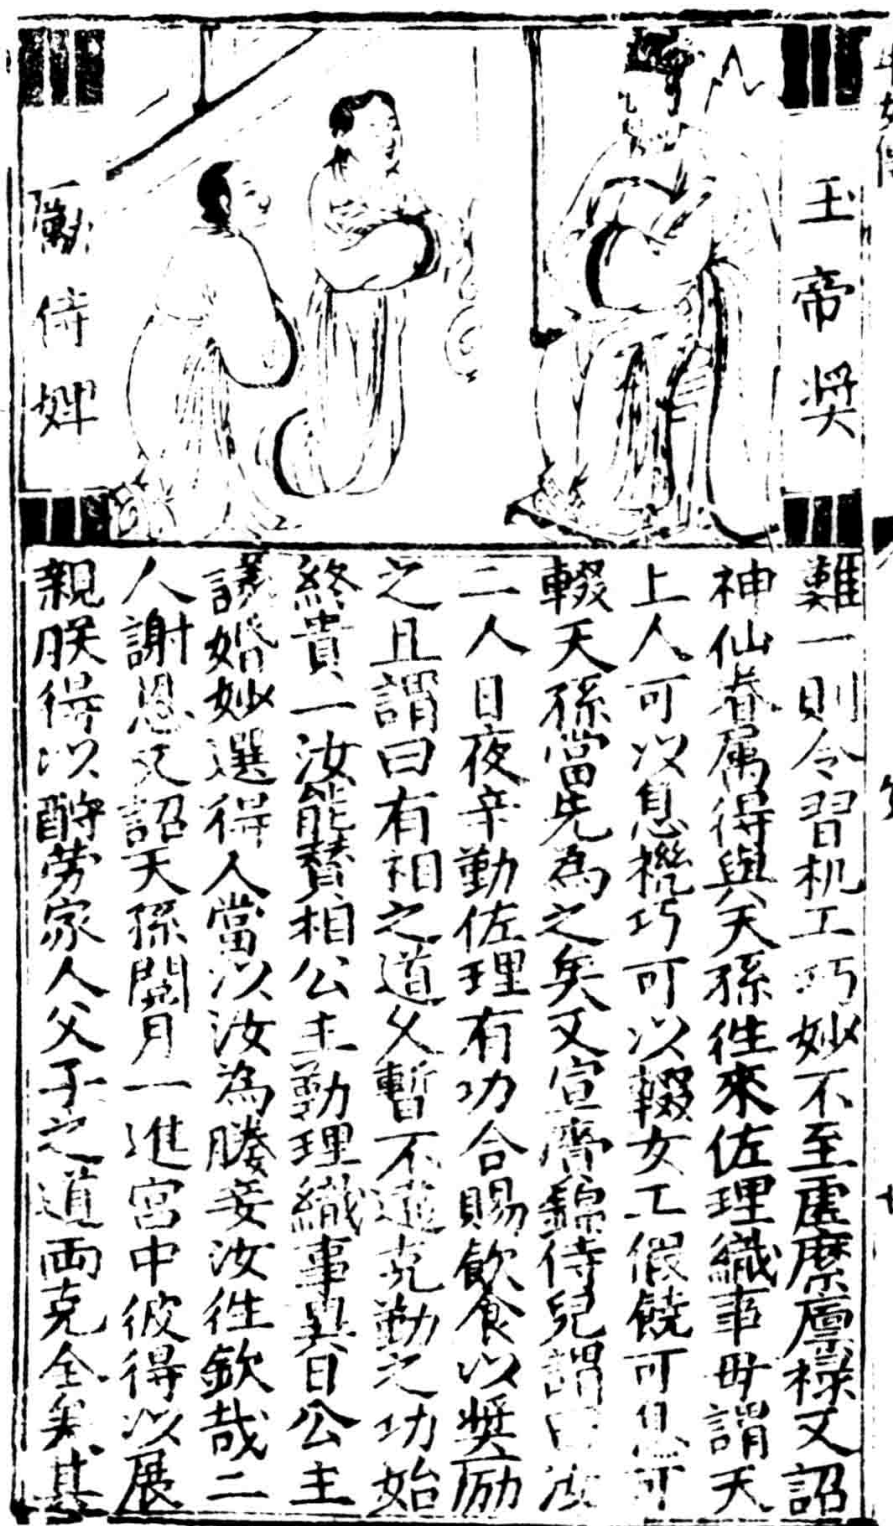 玉帝奬
勵侍婢
難一則令習机工巧妙不至虛縻廩祿又詔
神仙眷属得與天孫徃來佐理織事毋謂天
上人可以息機巧可以輟女工假饒可息可
輟天孫當先為之矣又宣齎錦侍兒謂曰汝
二人日夜辛勤佐理有功合賜飲食以奬励
之且謂曰有相之道父暫不遑克勤之功始
終貴一汝能賛相公主勤理織事異日公主
議婚妙選得人當以汝為媵妾汝徃欽哉二
人謝恩又詔天孫閱月一進宮中彼得以展
親朕得以酧劳家人父子之道両克全矣其